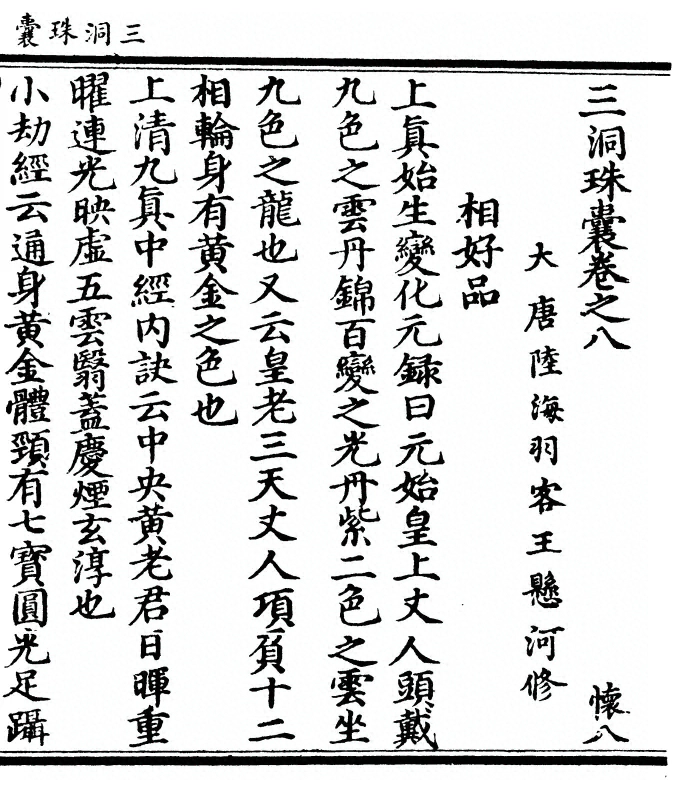 三洞珠囊
三洞珠囊卷之八 懷八
大唐陸海羽客王懸河修
相好品
上眞始生變化元録曰元始皇上丈人頭戴
九色之雲丹錦百變之光丹紫二色之雲坐
九色之龍也又云皇老三天丈人項負十二
相輪身有黄金之色也
上清九眞中經内訣云中央黄老君日暉重
曜連光映虚五雲翳蓋慶煙玄淳也
小劫經云通身黄金體頸有七寳圓光足躡